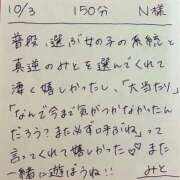 10/3 150分 N様
普段、選ぶ女の子の系統と
真逆のみとを選んでくれて
凄く嬉しかったし、「大当たり」
「なんで今まで気がつかなかったん
だろう?また必ず呼ぶね」って
言ってくれて嬉しかった♡♡また
一緒に遊ぼうね!! みと